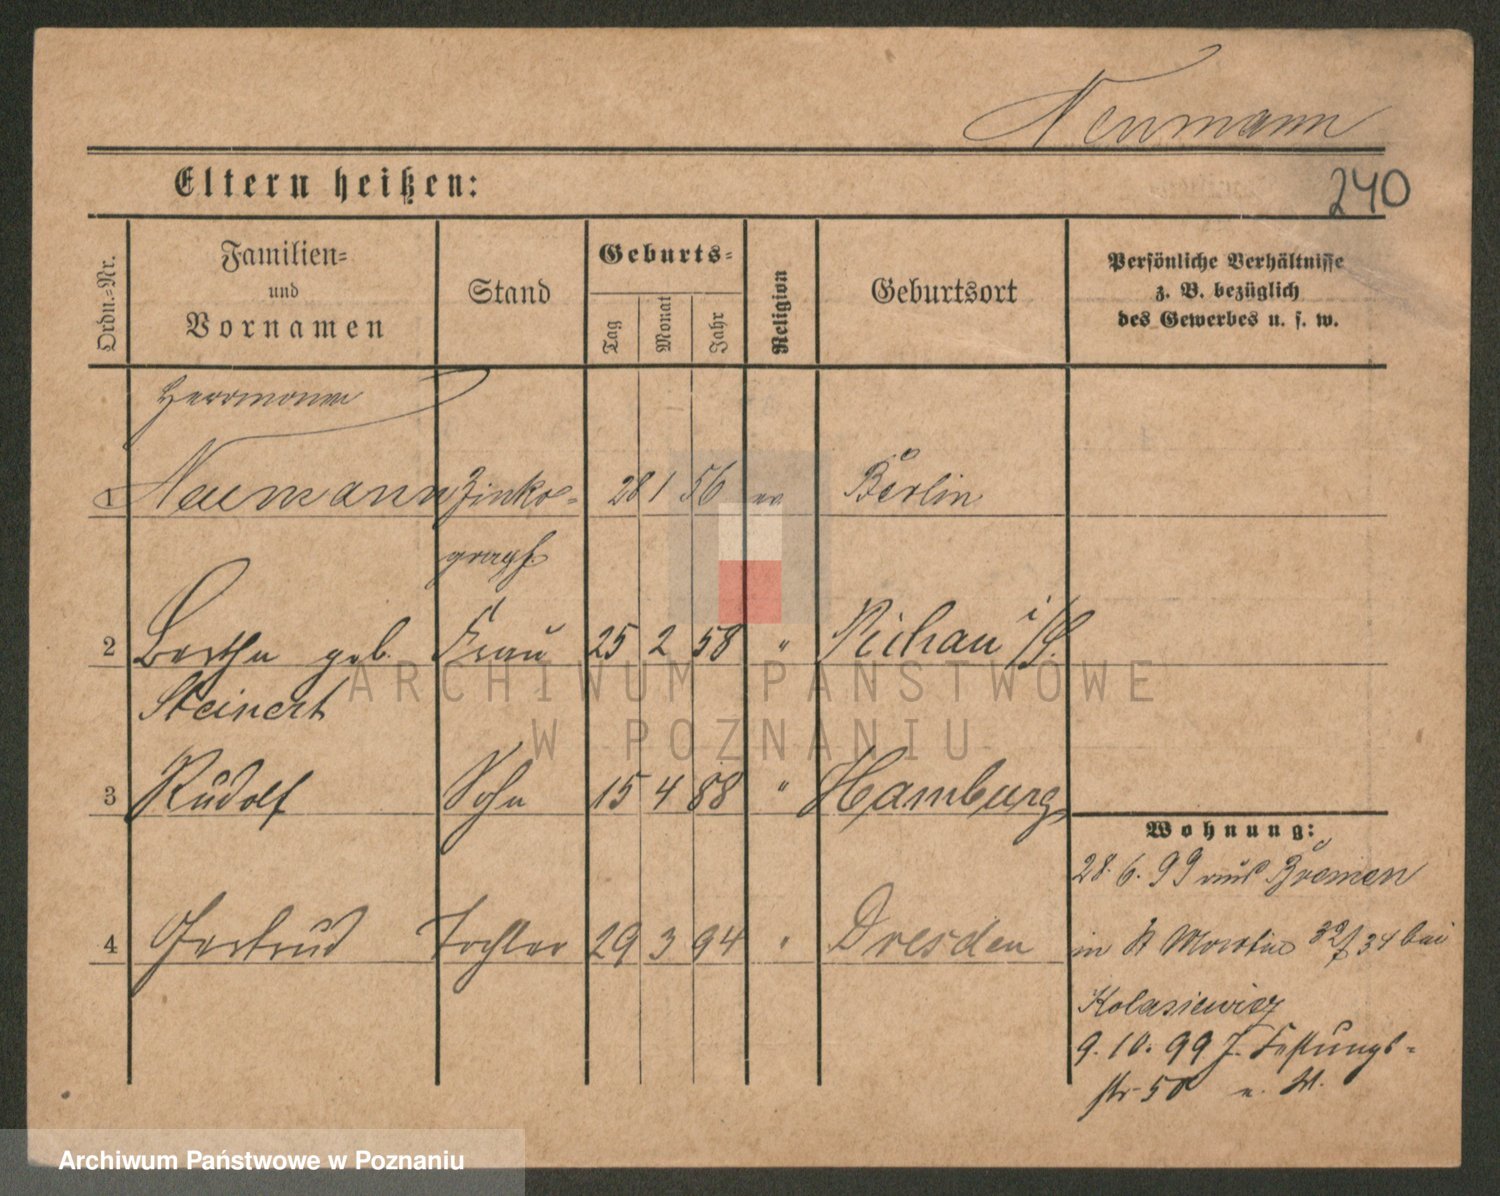 Neumann
Eltern heißen:
240
Ordn.-Nr.
Familien-
und
Vornamen
Stand
Geburts-
Tag
Monat
Jahr
Religion
Geburtsort
Persönliche Verhältnisse
z. B. bezüglich
des Gewerbes u. s. w.
Herrmann
1 Neumann Zinko- 28 1 56 ev Berlin
graph.
2 Bertha geb. Frau 25 2 58 "
Steinert
3 Rudolf Sohn 15 4 88 " Hamburg
Wohnung:
28. 6. 99 aus Bremen
4 Gertrud Tochter 29 3 94 " Dresden
in St Martin 32/34 bei
Kolasiewicz
9. 10. 99 Festungs-
str 50
ARCHIWUM PAŃSTWOWE
W POZNANIU
Archiwum Państwowe w Poznaniu